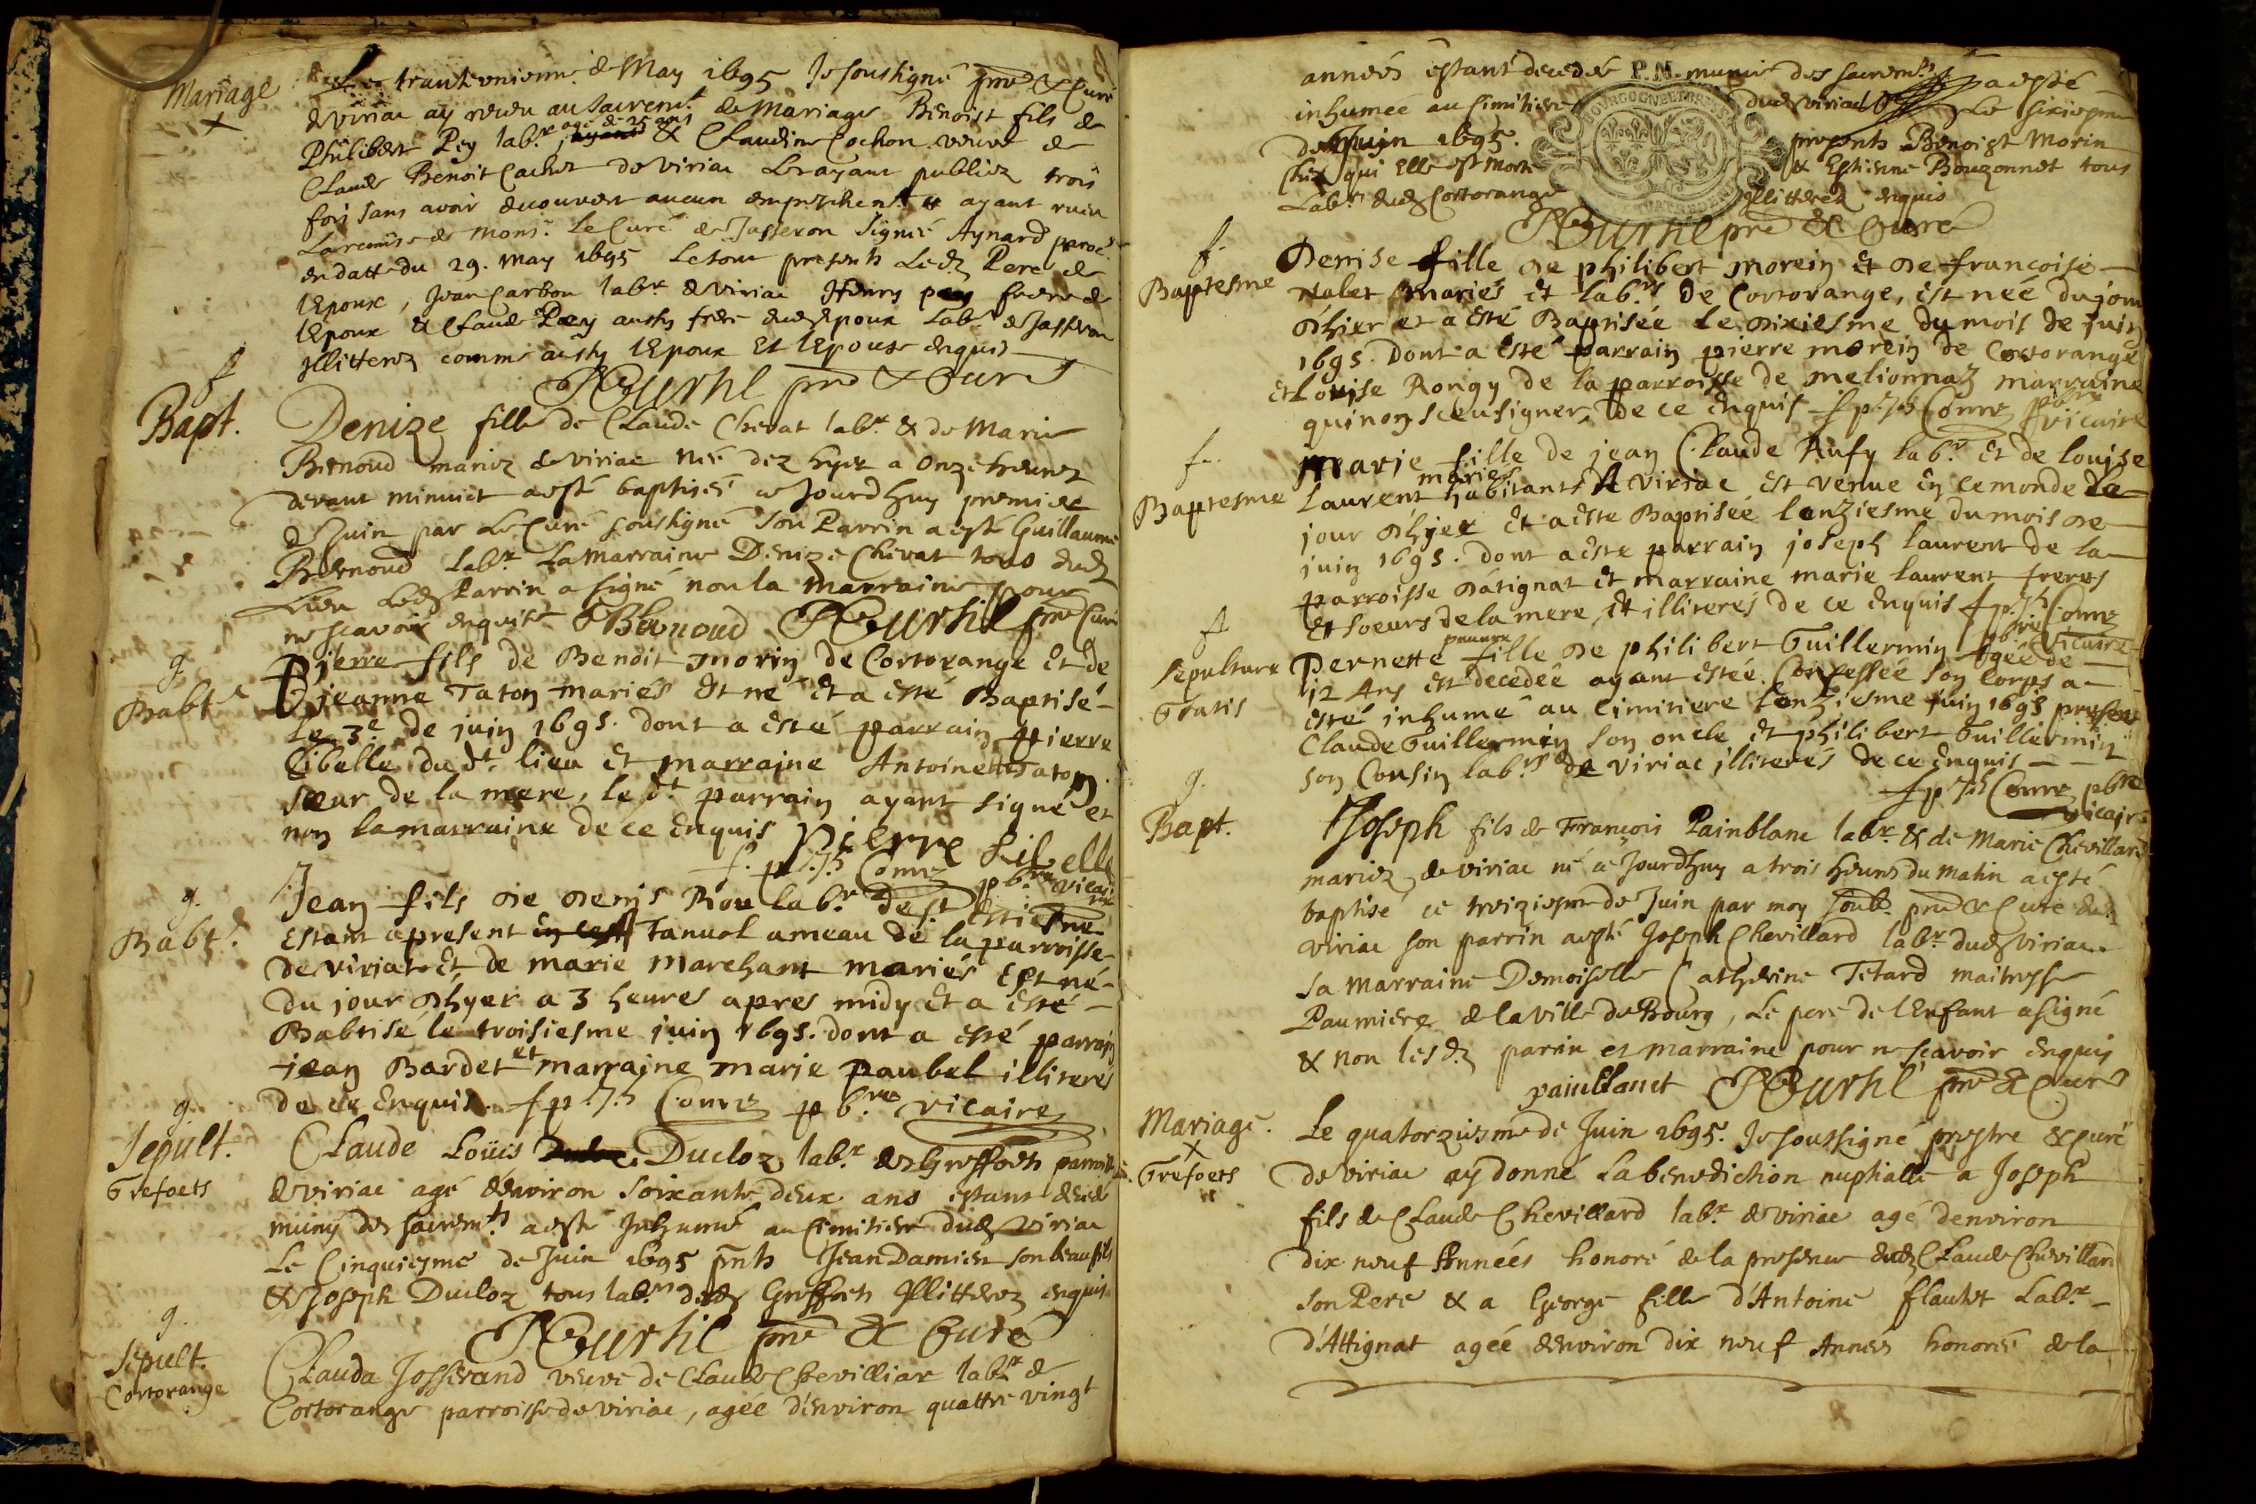 Mariage
Le trante unieme de May 1695 Je soussigné pre & Curé
de viriac ay receu au sacremt de Mariage Benoist fils de
Philibert Pey labr agé de 25 ans & Claudine Cochon veuve de
Claude Benoit Cachet de viriac Les ayant publiez trois
fois sans avoir decouvert aucun empeschemt & ayant receu
La remise de Monsr Le Curé de Jasseron Signée Aynard
en datte du 29. may 1695 Le tout presents Led. Pere de
l'Epoux, Jean Carbon labr de viriac Henry pey frere de
l'Epoux & Claude Pey aussy frere dud Epoux Labr de Jasseron
Illitterez comme aussy l'Epoux Et l'Epouse enquis
pre & Curé
f
Bapt.
Denize fille de Claude Chevat labr & de Marie
Bernoud mariez de viriac née dez hyer a Onze heures
devant minuict a esté baptisée ce Jourdhuy premier
de Juin par Le Curé soussigné Son Parrin a esté Guillaume
Bernoud labr La Marraine Denize Chevat tous dud.
Lieu Led. Parrin a signé non la marraine pour
ne scavoir enquise Bernoud pre Curé
g.
Babte
Pierre fils de Benoit morin de Cortorange Et de
jeanne Taton mariés Est né Et a esté Baptisé
Le 3e de juin 1695. dont a esté parrain pierre
Libelle du dt lieu Et marraine Antoinette Taton
sœur de la mere, le dt parrain ayant signé et
non la marraine de ce Enquis pierre Libelle
Comz pbre vicaire
g.
Babte
Jean fils de denis Rou labr de st Estienne
Estant apresent Tanvol ameau de la parroisse
de viriat Et de marie marchant mariés Est né
du jour d'hyer a 3 heures apres midy Et a Esté
Babtisé le troisiesme juin 1695. dont a esté parrain
jean Bardet et marraine marie paubel illiterés
de ce Enquis. f p Comz pbre vicaire
g.
Sepult.
Grefoets
Claude Loüis Ducloz labr de Greffoets parroisse
de viriac agé d'environ soixante deux ans estant decedé
muny des sacremts a esté Inhumé au Cimitiere dud. viriac
Le Cinquiesme de Juin 1695 pnts Jean Damien son beau fils
& Joseph Ducloz tous labrs dud. Greffoets Illitterez enquis
pre & Curé
g.
Sepult.
Cortorange
Clauda Josserand veuve de Claude Chevilliar labr de
Cortorange parroisse de viriac, agée d'environ quattre vingt
années estant decedée P.N. munie des sacremts a esté
inhumée au Cimitiere dud. viriac Le sixiesme
de Juin 1695. presents Benoist Morin
chez qui Elle est morte & Estienne Bouzonnet tous
Labrs dud. Cortorange Illitterez enquis
pre & Curé
BOURGOGNE ET BRESSE
f.
Baptesme
Denise fille de philibert morein Et de françoise
nalet mariés Et labrs de Cortorange, est née du jour
d'hier et a esté Baptisée le dixiesme du mois de juin
1695. dont a esté parrain pierre morein de Cortorange
Et Louise Rongy de la parroisse de melionnaz marraine
qui non sceu signer, de ce Enquis f p Comz pbre vicaire
f.
Baptesme
Marie fille de jean Claude Rufy labr Et de louise
Laurent mariés habitants A viriac est venue En ce monde le
jour d'hjer Et a esté Baptisée l'onziesme du mois de
juin 1695. dont a este parrain joseph laurent de la
parroisse d'atignat Et marraine marie laurent freres
Et soeurs de la mere, Et illiterés de ce Enquis f p Comz
pbre vicaire
f
sepulture
Gratis
Pernette pauvre fille de philibert Guillermin agée de
12 Ans est decedée ayant estée Confessée son Corps a
esté inhumé au Cimitiere l'onziesme juin 1695 present
Claude Guillermin son oncle Et philibert Guillermin
son Cousin labrs de viriac illiterés de ce Enquis
f p Comz pbre
vicaire
g.
Bapt.
Joseph fils de François Painblanc labr & de Marie Chevillard
mariez de viriac né ce Jourdhuy a trois heures du matin a esté
baptisé ce treiziesme de Juin par moy soubs. pre & Curé dud.
viriac son parrin a esté Joseph Chevillard labr dud. viriac
sa marraine Demoiselle Catherine Tetard maitresse
Paumiere de la ville de Bourg, Le pere de l'Enfant a signé
& non lesd. parrin et marraine pour ne scavoir enquis
painblanct pre & Curé
Mariage.
Grefoets
Le quatorziesme de Juin 1695. Je soussigné prestre & curé
de viriac ay donné La benediction nuptialle a Joseph
fils de Claude Chevillard labr de viriac agé d'environ
dix neuf Années honoré de la presence dud. Claude Chevillard
son Pere & a George fille d'Antoine flautet Labr
d'Attignat agée d'environ dix neuf Années honorée de la